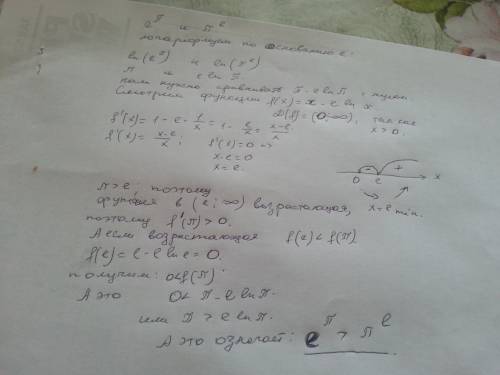 e^π и π^e
логарифмируем по основанию e:
ln(e^π) и ln(π^e)
π и e ln π.
нам нужно сравнивать π - e ln π с нулем.
Смотрим функцию f(x) = x - e ln x
f'(x) = 1 - e · 1/x = 1 - e/x = (x-e)/x D(f) = (0; ∞), так как x > 0.
f'(x) = (x-e)/x; f'(x) = 0 =>
x - e = 0
x = e.
- + 0 e x
x = e min.
π > e; поэтому
функция в (e; ∞) возрастающая,
поэтому f'(π) > 0.
А если возрастающая f(e) < f(π)
f(e) = e - e ln e = 0.
получим: 0 < f(π)
А это 0 < π - e ln π.
или π > e ln π.
А это означает: e^π > π^e.